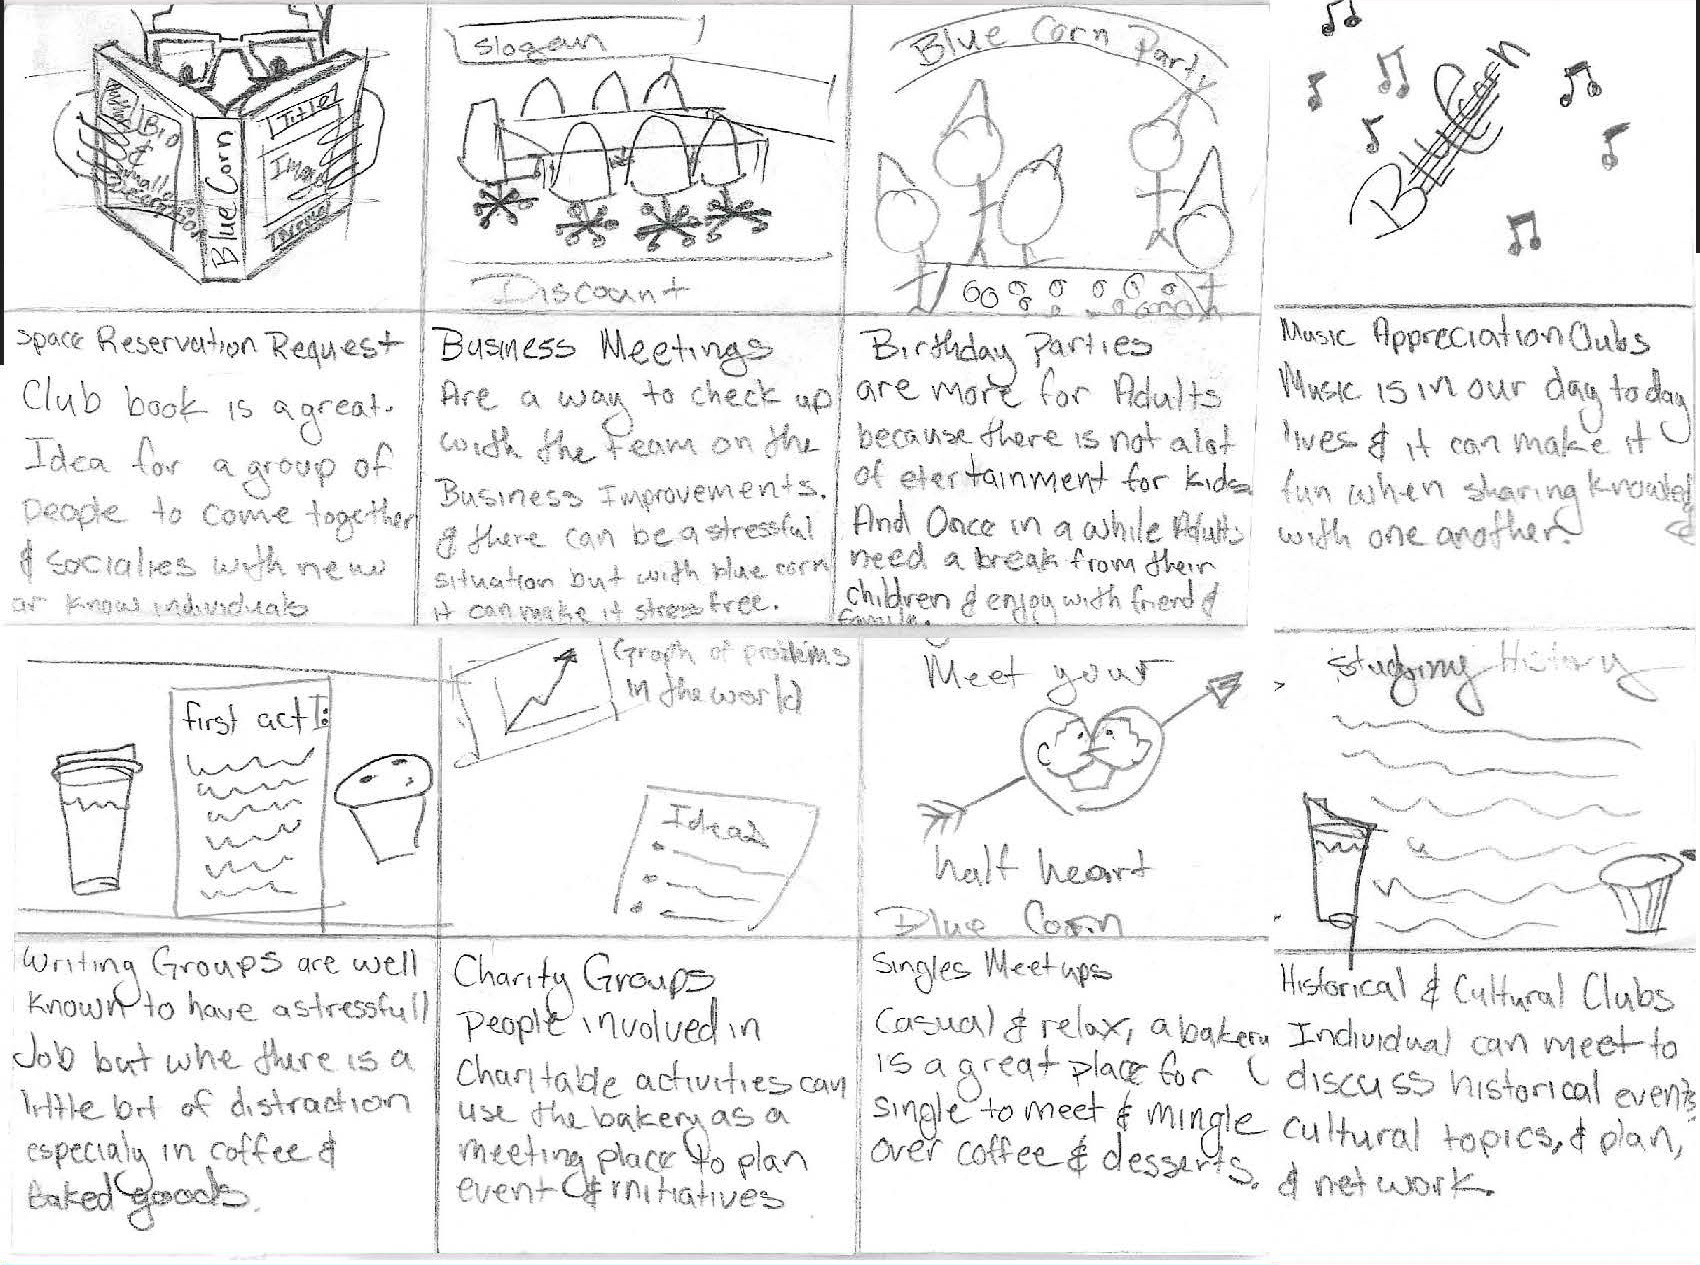 Bio
&
Small
Blue Corn
Title
Image
slogan
Discount
Blue Corn Party
Blue Corn
Space Reservation Request
Club book is a great.
Idea for a group of
People to come together
& socialies with new
or know individuals
Business Meetings
Are a way to check up
with the team on the
Business Improvements.
& there can be a stressful
situation but with blue corn
it can make it stress free.
Birthday Parties
are more for Adults
because there is not alot
of etertainment for kids
And Once in a while Adults
need a break from their
children & enjoy with friend &
family.
Music Appreciation Clubs
Music is in our day to day
lives & it can make it
fun when sharing knowledge
with one another.
first act I:
Graph of problems
in the world
Ideas
Meet your
half heart
Blue Corn
Studying History
Writing Groups are well
known to have a stressfull
Job but whe there is a
little bit of distraction
especialy in coffee &
baked goods.
Charity Groups
People involved in
charitable activities can
use the bakery as a
meeting place to plan
event & initiatives
Singles Meetups
Casual & relax, a bakery
is a great place for
single to meet & mingle
over coffee & desserts.
Historical & Cultural Clubs
Individual can meet to
discuss historical events
cultural topics, & plan,
& network.